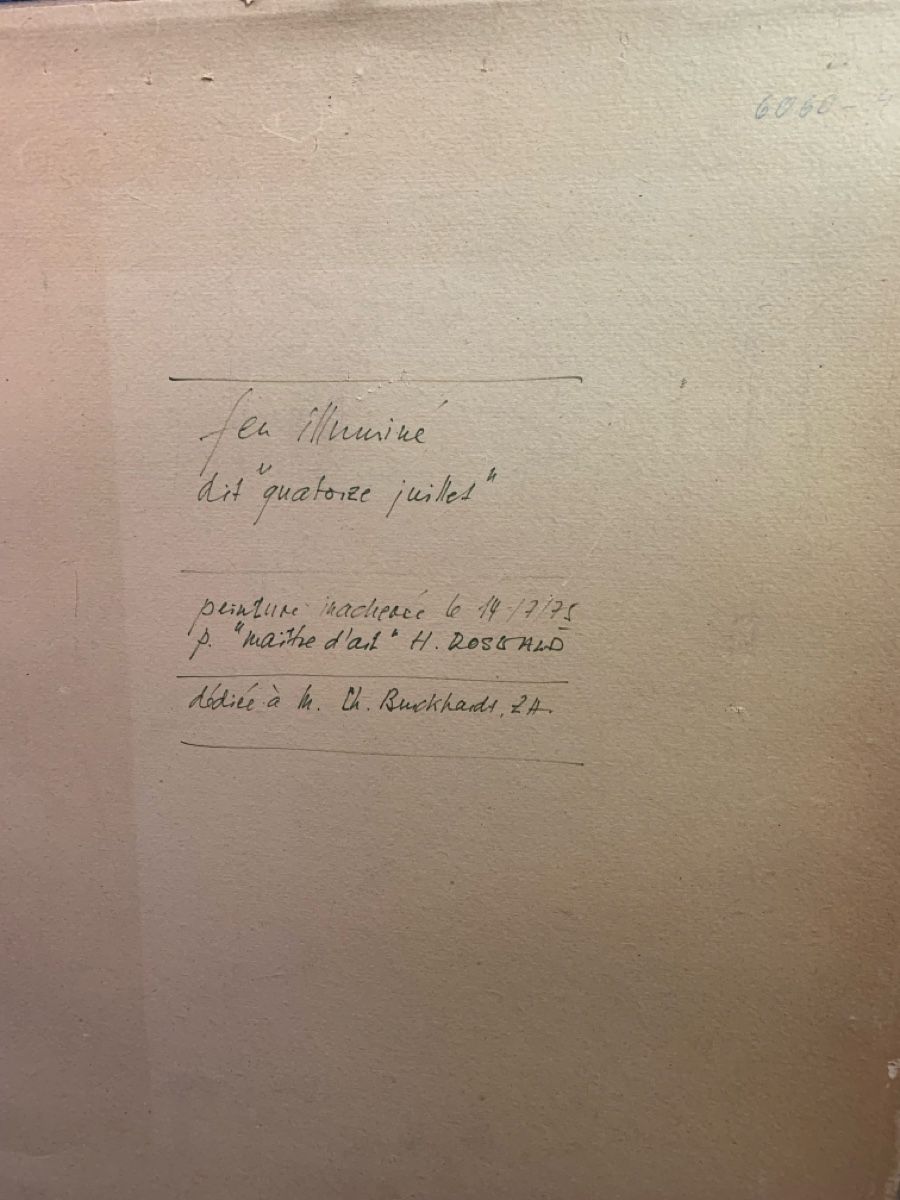 6060-4
feu illuminé
dit "quatorze juillet"
peinture inachevée le 14/7/75
p. "maître d'art" H.
dédiée à M. Ch. Burckhardt, ZH.